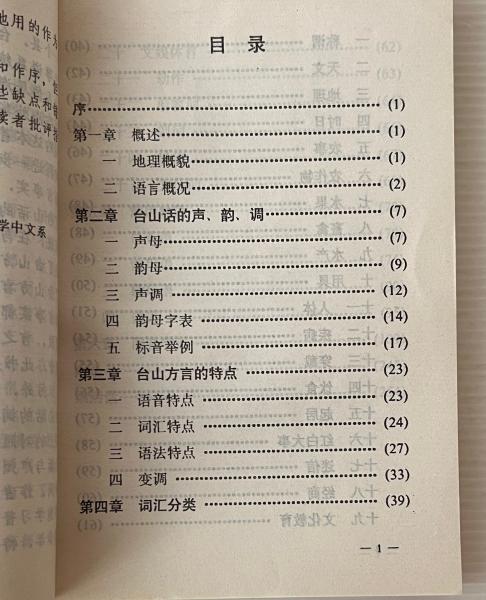 地用的作
和作序,
些缺点和
读者批评
学中文系
目 录
序……(1)
第一章 概述……(1)
一 地理概貌……(1)
二 语言概况……(2)
第二章 台山话的声、韵、调……(7)
一 声母……(7)
二 韵母……(9)
三 声调……(12)
四 韵母字表……(14)
五 标音举例……(17)
第三章 台山方言的特点……(23)
一 语音特点……(23)
二 词汇特点……(24)
三 语法特点……(27)
四 变调……(33)
第四章 词汇分类……(39)
— 1 —